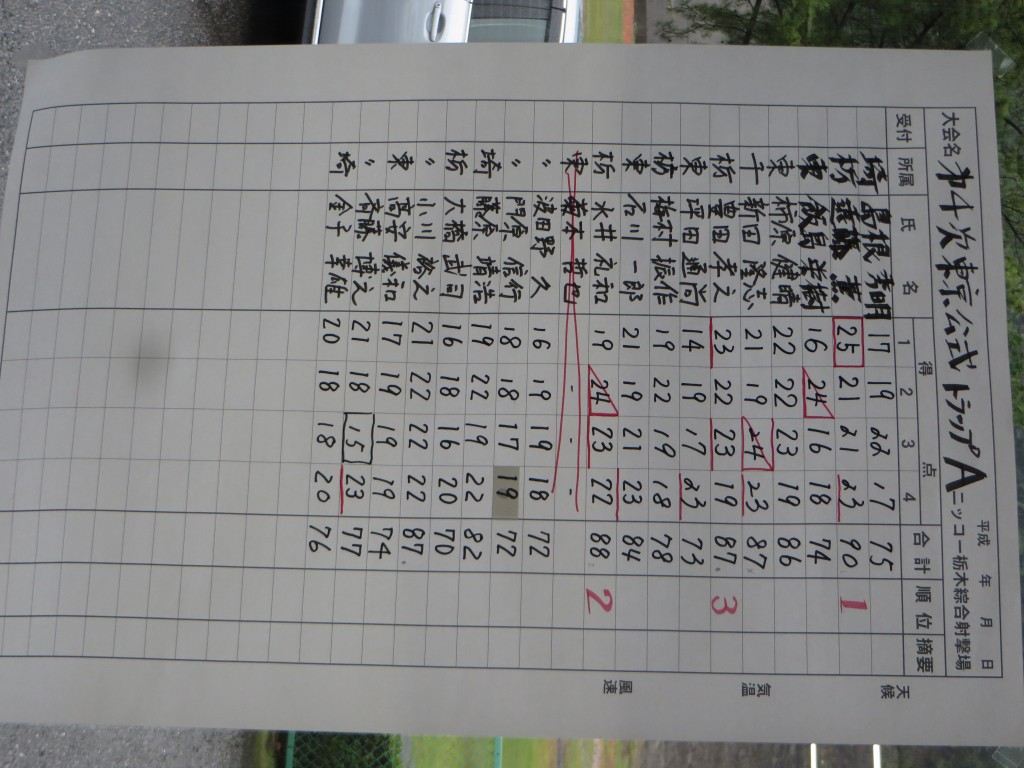 大会名 第4次東京公式トラップA ニッコー栃木綜合射撃場
平成 年 月 日
受付 所属 氏名 得点 1 2 3 4 合計 順位 摘要
埼 島根 秀明 17 19 22 17 75
栃 遠藤 薫 25 21 21 23 90 1
東 飯島 栄樹 16 24 16 18 74
東 柿原 健晴 22 22 23 19 86
千 新田 隆志 21 19 24 23 87
栃 豊田 孝之 23 22 23 19 87 3
東 坪田 通尚 14 19 17 23 73
栃 梅村 振作 19 22 19 18 78
東 石川 一郎 21 19 21 23 84
栃 水井 礼和 19 24 23 22 88 2
東 哲也 - - -
〃 波田野 久 16 19 19 18 72
〃 門原 信行 18 18 17 19 72
埼 藤原 靖浩 19 22 19 22 82
栃 大橋 武司 16 18 16 20 70
〃 小川 21 22 22 22 87
東 高守 儀和 17 19 19 19 74
〃 斉藤 博之 21 18 15 23 77
埼 金子 幸雄 20 18 18 20 76
天候
気温
風速